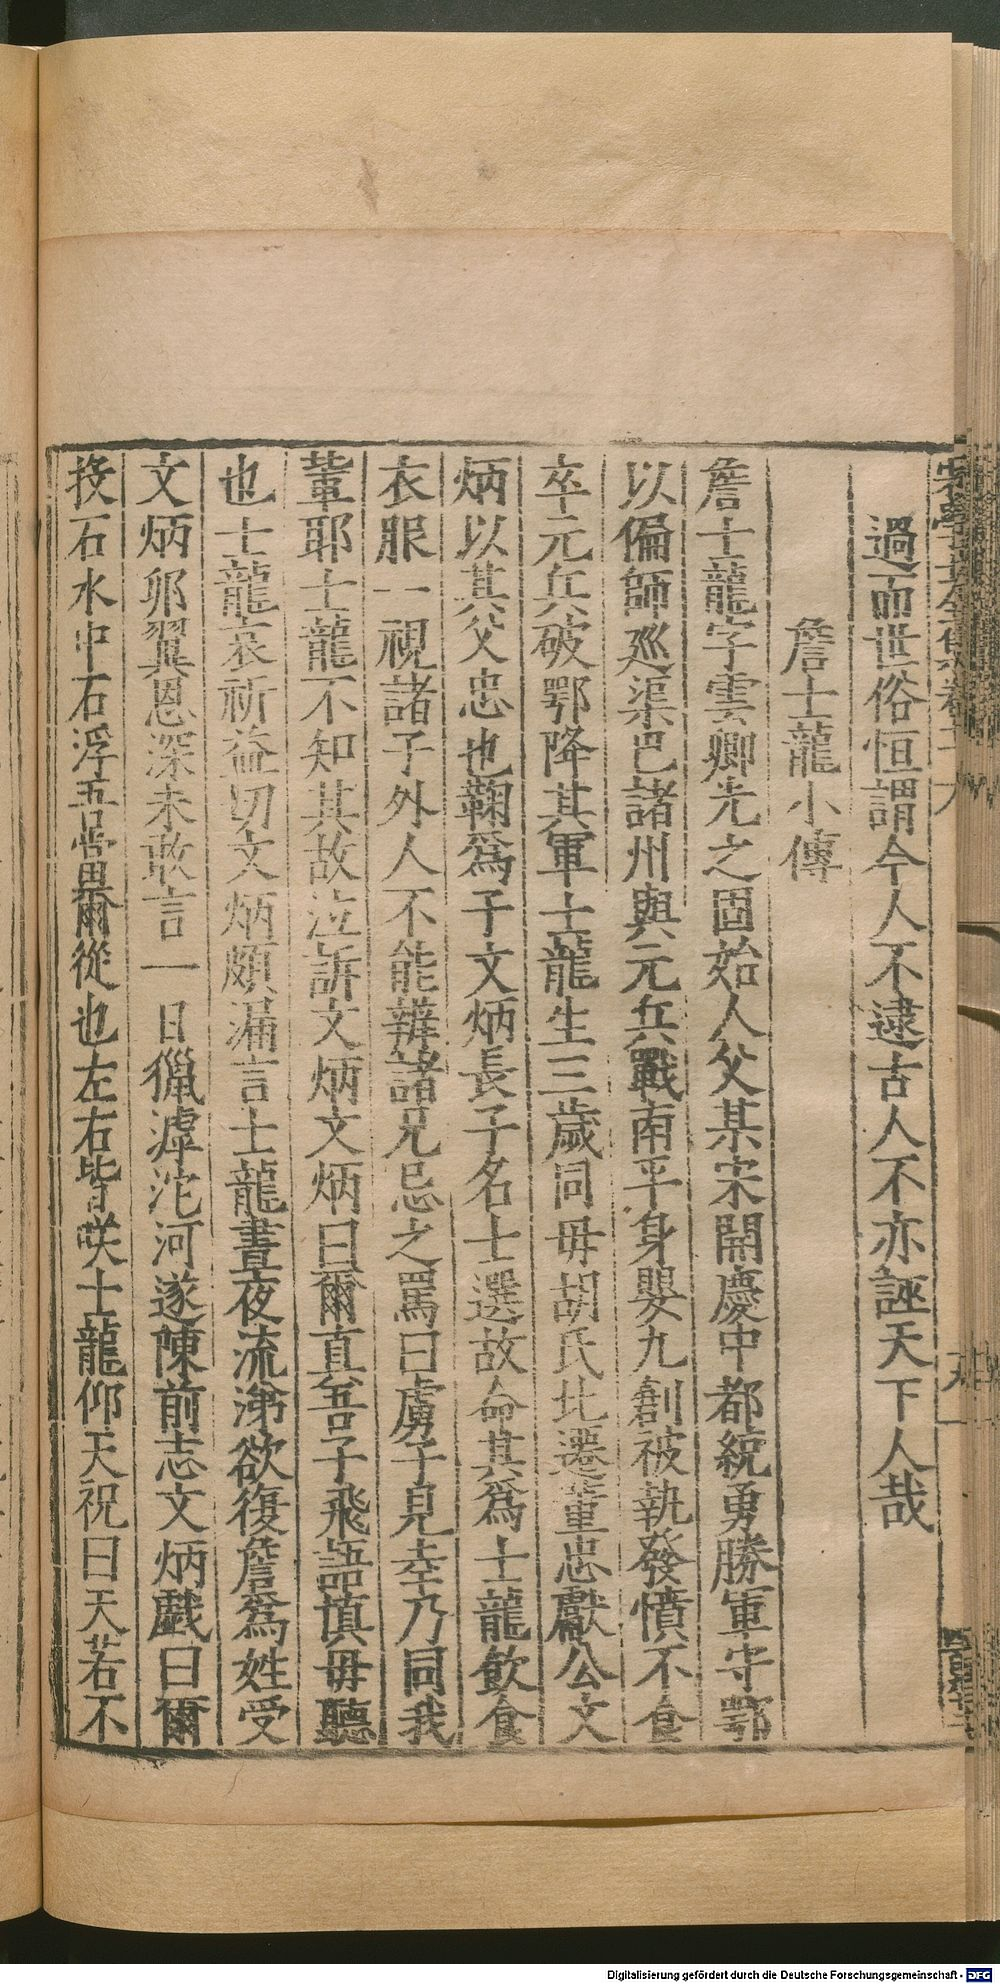 過而世俗恒謂今人不逮古人不亦誣天下人哉
詹士龍小傳
詹士龍字雲卿光之固始人父某宋開慶中都統勇勝軍守鄂
以偏師廵渠巴諸州與元兵戰南平身嬰九創被執發憤不食
卒元兵破鄂降其軍士龍生三歲同毋胡氏北遷董忠獻公文
炳以其父忠也鞠爲子文炳長子名士選故命其爲士龍飲食
衣服一視諸子外人不能辨諸兄忌之罵曰虜子見坴乃同我
輩耶士龍不知其故泣訴文炳文炳曰爾直吾子飛語慎毋聽
也士龍哀祈益切文炳頗漏言士龍晝夜流涕欲復詹爲姓受
文炳卵翼恩深未敢言一日獵滹沱河遂陳前志文炳戲曰爾
投石水中石浮吾當畀爾從也左右皆咲士龍仰天祝曰天若不
Digitalisierung gefördert durch die Deutsche Forschungsgemeinschaft - DFG